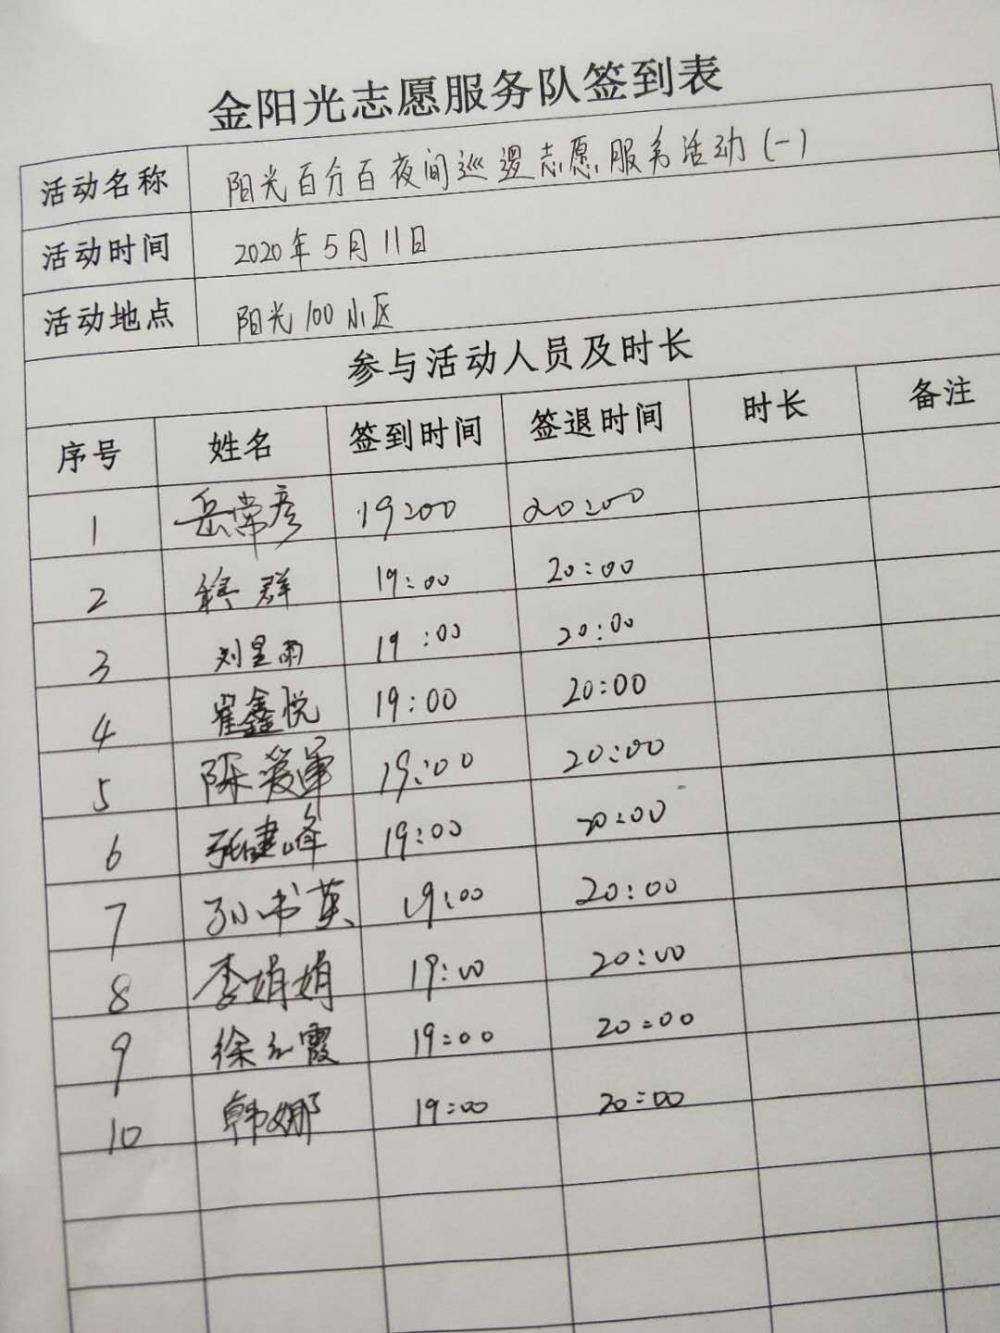 金阳光志愿服务队签到表
活动名称 阳光百分百夜间巡逻志愿服务活动(一)
活动时间 2020年5月11日
活动地点 阳光100小区
参与活动人员及时长
序号 姓名 签到时间 签退时间 时长 备注
1 岳常彦 19:00 20:00
2 群 19:00 20:00
3 刘星雨 19:00 20:00
4 崔鑫悦 19:00 20:00
5 陈爱军 19:00 20:00
6 张建峰 19:00 20:00
7 孙书英 19:00 20:00
8 李娟娟 19:00 20:00
9 徐红霞 19:00 20:00
10 韩娜 19:00 20:00